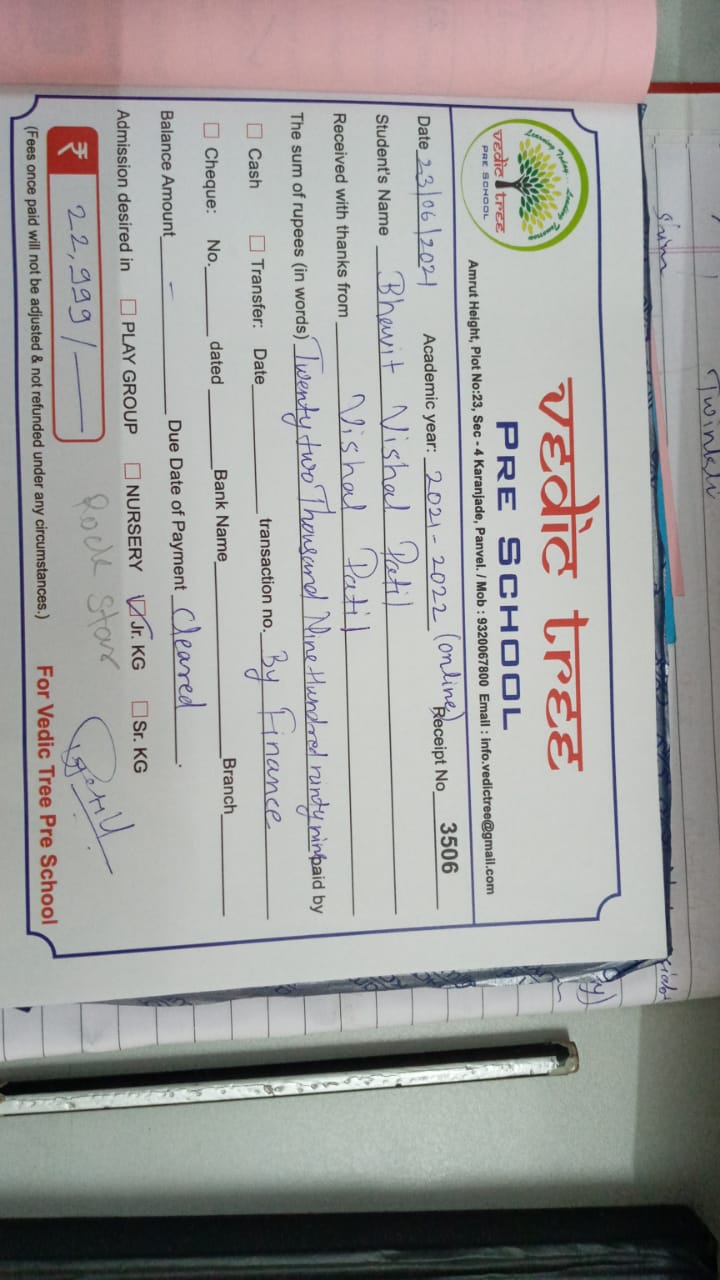 Twinkle
Learning Today... Leading Tomorrow
vedic tree
PRE SCHOOL
vedic tree
PRE SCHOOL
Amrut Height, Plot No:23, Sec - 4 Karanjade, Panvel. / Mob : 9320067800 Email : info.vedictree@gmail.com
Date 23/06/2021 Academic year: 2021-2022 (online) Receipt No 3506
Student's Name Bhavit Vishal Patil
Received with thanks from Vishal Patil
The sum of rupees (in words) Twenty two Thousand Nine Hundred ninty nine paid by
Cash Transfer: Date transaction no. By Finance
Cheque: No. dated Bank Name Branch
Balance Amount - Due Date of Payment Cleared.
Admission desired in PLAY GROUP NURSERY Jr. KG Sr. KG
Rock Star
₹ 22,999/-
(Fees once paid will not be adjusted & not refunded under any circumstances.) For Vedic Tree Pre School